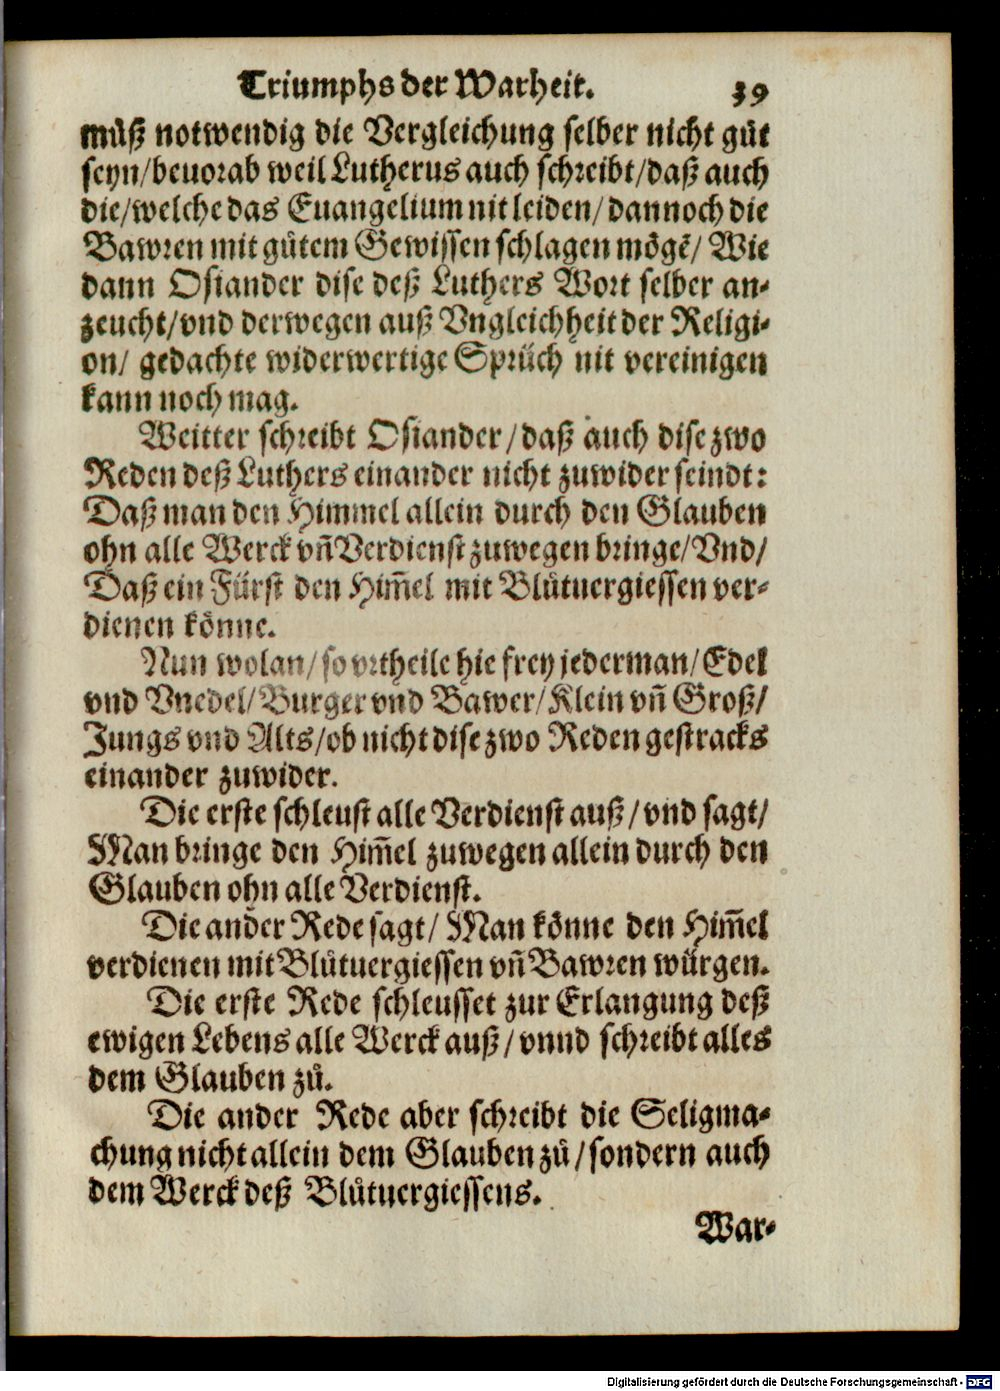 Triumphs der Warheit. 39
můß notwendig die Vergleichung selber nicht gůt
seyn/beuorab weil Lutherus auch schreibt/daß auch
die/welche das Euangelium nit leiden/dannoch die
Bawren mit gůtem Gewissen schlagen mögẽ/ Wie
dann Osiander dise deß Luthers Wort selber an-
zeucht/vnd derwegen auß Vngleichheit der Religi-
on/ gedachte widerwertige Sprüch nit vereinigen
kann noch mag.
Weitter schreibt Osiander/daß auch dise zwo
Reden deß Luthers einander nicht zuwider seindt:
Daß man den Himmel allein durch den Glauben
ohn alle Werck vñ Verdienst zuwegen bringe/Vnd/
Daß ein Fürst den Him̃el mit Blůtuergiessen ver-
dienen könne.
Nun wolan/so vrtheile hie frey jederman/Edel
vnd Vnedel/Burger vnd Bawer/Klein vñ Groß/
Jungs vnd Alts/ob nicht dise zwo Reden gestracks
einander zuwider.
Die erste schleust alle Verdienst auß/vnd sagt/
Man bringe den Him̃el zuwegen allein durch den
Glauben ohn alle Verdienst.
Die ander Rede sagt/ Man könne den Him̃el
verdienen mit Blůtuergiessen vñ Bawren würgen.
Die erste Rede schleusset zur Erlangung deß
ewigen Lebens alle Werck auß/vnnd schreibt alles
dem Glauben zů.
Die ander Rede aber schreibt die Seligma-
chung nicht allein dem Glauben zů/sondern auch
dem Werck deß Blůtuergiessens.
War-
Digitalisierung gefördert durch die Deutsche Forschungsgemeinschaft - DFG